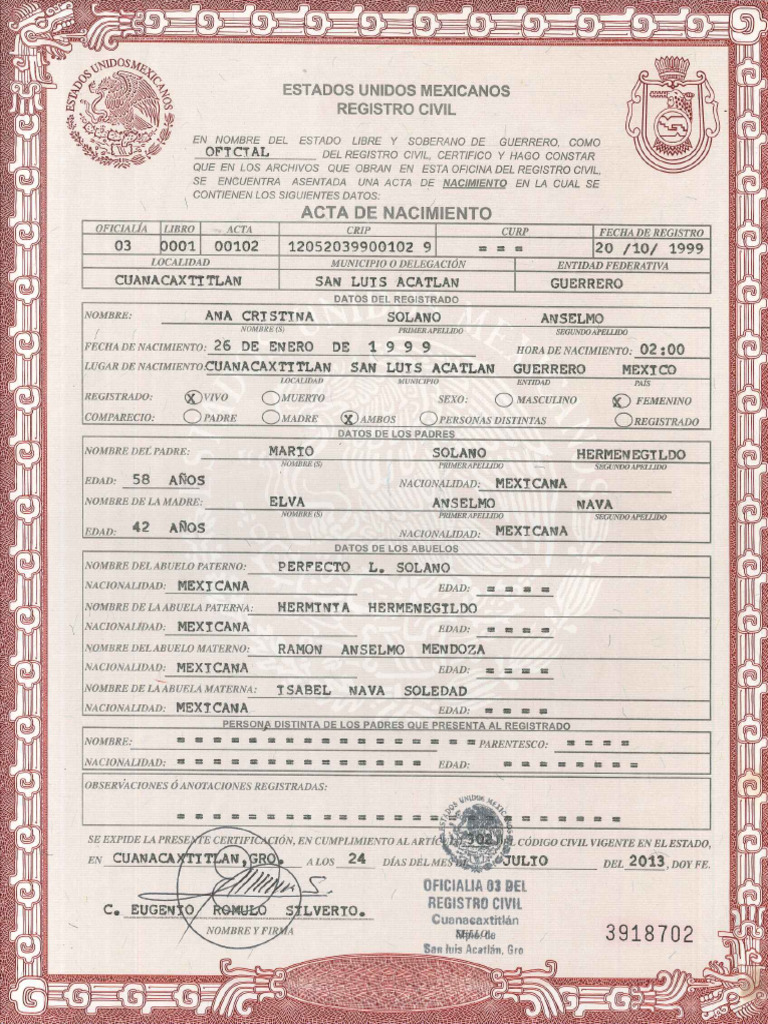 ESTADOS UNIDOS MEXICANOS
ESTADOS UNIDOS MEXICANOS
REGISTRO CIVIL
EN NOMBRE DEL ESTADO LIBRE Y SOBERANO DE GUERRERO, COMO
OFICIAL DEL REGISTRO CIVIL, CERTIFICO Y HAGO CONSTAR
QUE EN LOS ARCHIVOS QUE OBRAN EN ESTA OFICINA DEL REGISTRO CIVIL,
SE ENCUENTRA ASENTADA UNA ACTA DE NACIMIENTO EN LA CUAL SE
CONTIENEN LOS SIGUIENTES DATOS:
ACTA DE NACIMIENTO
OFICIALÍA LIBRO ACTA CRIP CURP FECHA DE REGISTRO
03 0001 00102 12052039900102 9 = = = 20 /10/ 1999
LOCALIDAD MUNICIPIO O DELEGACIÓN ENTIDAD FEDERATIVA
CUANACAXTITLAN SAN LUIS ACATLAN GUERRERO
DATOS DEL REGISTRADO
NOMBRE: ANA CRISTINA SOLANO ANSELMO
NOMBRE (S) PRIMER APELLIDO SEGUNDO APELLIDO
FECHA DE NACIMIENTO: 26 DE ENERO DE 1999 HORA DE NACIMIENTO: 02:00
LUGAR DE NACIMIENTO: CUANACAXTITLAN SAN LUIS ACATLAN GUERRERO MEXICO
LOCALIDAD MUNICIPIO ENTIDAD PAÍS
REGISTRADO: X VIVO MUERTO SEXO: MASCULINO X FEMENINO
COMPARECIO: PADRE MADRE X AMBOS PERSONAS DISTINTAS REGISTRADO
DATOS DE LOS PADRES
NOMBRE DEL PADRE: MARIO SOLANO HERMENEGILDO
NOMBRE (S) PRIMER APELLIDO SEGUNDO APELLIDO
EDAD: 58 AÑOS NACIONALIDAD: MEXICANA
NOMBRE DE LA MADRE: ELVA ANSELMO NAVA
NOMBRE (S) PRIMER APELLIDO SEGUNDO APELLIDO
EDAD: 42 AÑOS NACIONALIDAD: MEXICANA
DATOS DE LOS ABUELOS
NOMBRE DEL ABUELO PATERNO: PERFECTO L. SOLANO
NACIONALIDAD: MEXICANA EDAD: = = = =
NOMBRE DE LA ABUELA PATERNA: HERMINIA HERMENEGILDO
NACIONALIDAD: MEXICANA EDAD: = = = =
NOMBRE DEL ABUELO MATERNO: RAMON ANSELMO MENDOZA
NACIONALIDAD: MEXICANA EDAD: = = = =
NOMBRE DE LA ABUELA MATERNA: ISABEL NAVA SOLEDAD
NACIONALIDAD: MEXICANA EDAD: = = = =
PERSONA DISTINTA DE LOS PADRES QUE PRESENTA AL REGISTRADO
NOMBRE: = = = = = = = = = = = = = = = = = PARENTESCO: = = = =
NACIONALIDAD: = = = = = = = = = = = = = = EDAD: = = = = = = = =
OBSERVACIONES Ó ANOTACIONES REGISTRADAS:
= = = = = = = = = = = = = = = = = = = = = = = = =
SE EXPIDE LA PRESENTE CERTIFICACIÓN, EN CUMPLIMIENTO AL ARTÍCULO 302 CÓDIGO CIVIL VIGENTE EN EL ESTADO,
EN CUANACAXTITLAN, GRO. A LOS 24 DÍAS DEL MES DE JULIO DEL 2013, DOY FE.
C. EUGENIO ROMULO SILVERTO.
NOMBRE Y FIRMA
ESTADOS UNIDOS MEXICANOS
OFICIALIA 03 DEL
REGISTRO CIVIL
Cuanacaxtitlán
Mpio. de
San luis Acatlán, Gro
3918702